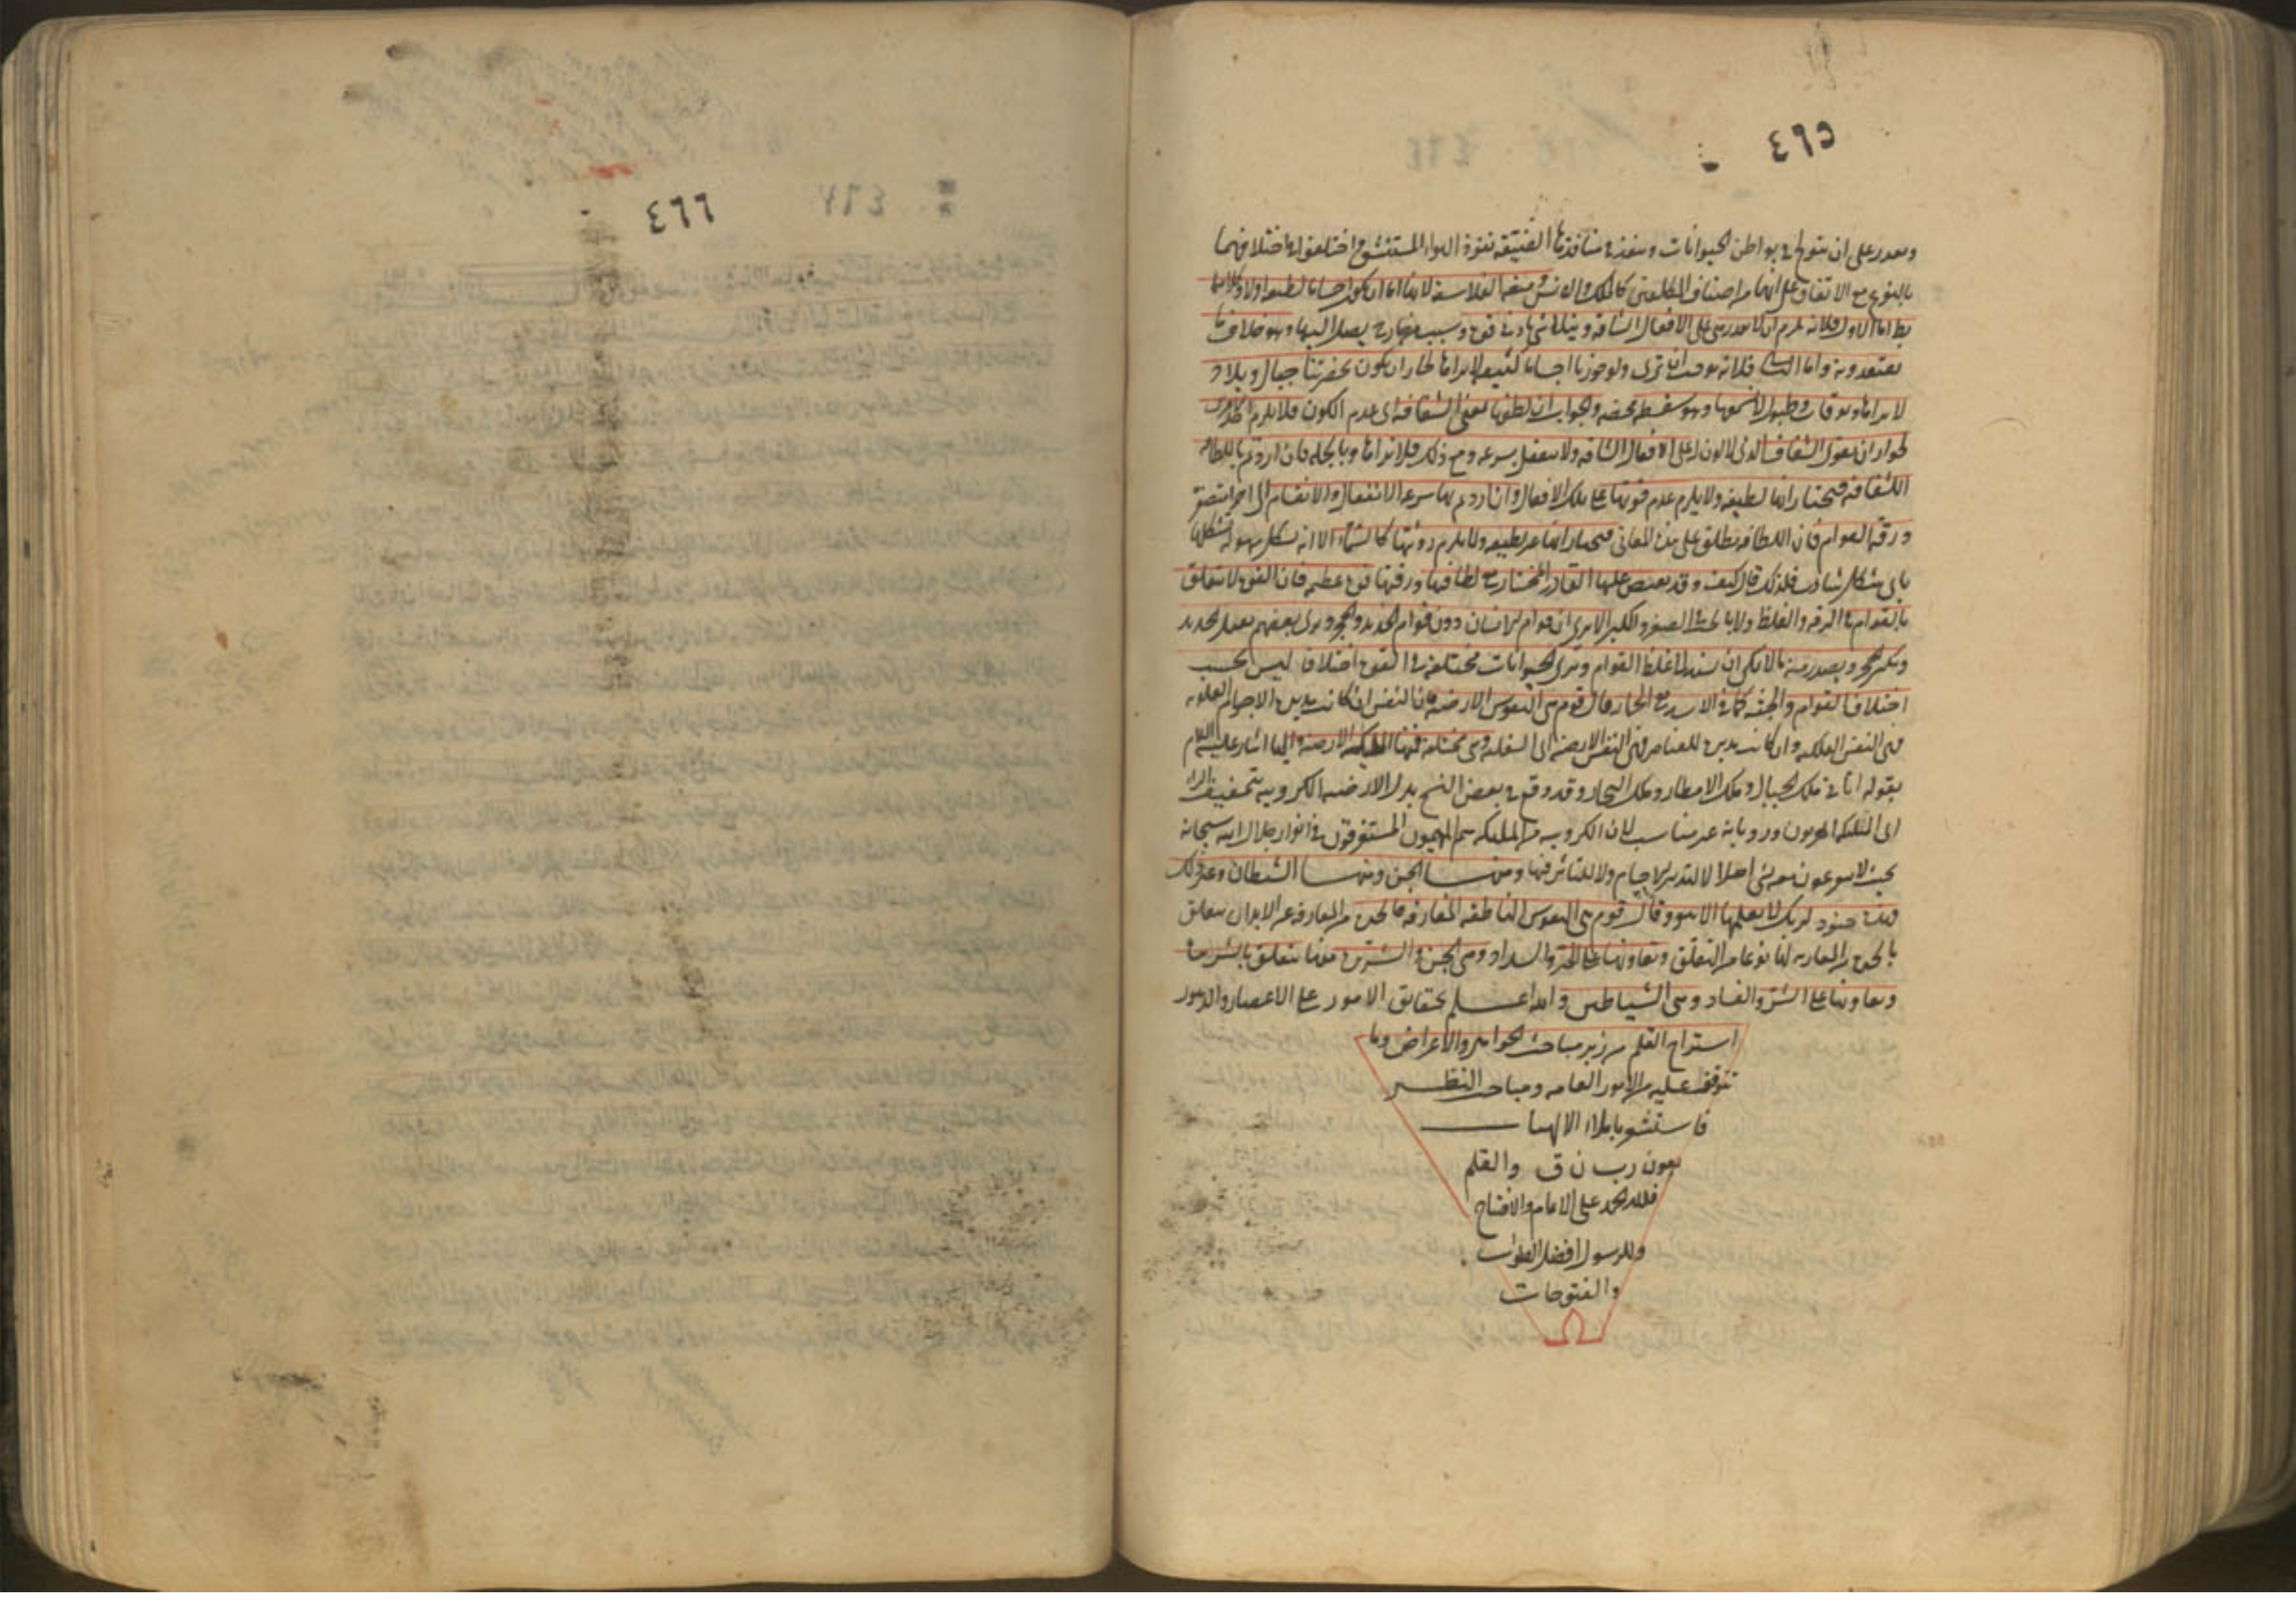 ٤٦٥
ويقدر على ان يتولج في بواطن الحيوانات وينفذ في منافذها الضيقة نفوذ الهواء المستنشق واختلفوا في اختلافهما
بالنوع مع الاتفاق على انهما من اصناف المكلفين كالملك والانس ومنعه الفلاسفة لانها اما ان يكون اجساما لطيفة اولا وكلاهما
بط اما الاول فلانه يلزم ان لا يقدروا على الافعال الشاقة ويتلاشى بادنى قوة وسبب من خارج يصل اليها وهو خلاف ما
يعتقدونه واما الثاني فلانه يوجب ان ترى ولو جوزنا اجساما كثيفة لا نراها لجاز ان يكون بحضرتنا جبال وبلاد
لا نراها وبوقات وطبول لا نسمعها وهو سفسطة محضة والجواب ان لطفها بمعنى الشفافة اى عدم اللون فلا يلزم
لجواز ان يقوى الشفاف الذى لا لون له على الافعال الشاقة ولا ينفعل بسرعة ومع ذلك فلا نراها وبالجملة فان اردتم باللطافة
الشفافة فنختار انها لطيفة ولا يلزم عدم قوتها على تلك الافعال وان اردتم بها سرعة الانفعال والانقسام الى اجزاء
ورقة القوام فان اللطافة تطلق على هذه المعانى فنختار انها غير لطيفة ولا يلزم رؤيتها كالسماء الا انه يشكل سهولة تشكلها
باى شكل شاءت فلذلك قال كيف وقد يفيض عليها القادر المختار مع لطافتها ورقتها قوة عظيمة فان القوة لا تتعلق
بالقوام في الرقة والغلظ ولا بالجثة في الصغر والكبر الا يرى ان قوام الانسان دون قوام الحديد والحجر ويرى بعضهم يفتل الحديد
ويكسر الحجر ويصدر منه ما لا يمكن ان يسند الى غلظ القوام ويرى الحيوانات مختلفة في القوة اختلافا ليس بحسب
اختلاف القوام والجثة كما في الاسد مع الحمار وقال قوم هى النفوس الارضية فان النفس ان كانت مدبرة للاجرام العلوية
فهى النفس الفلكية وان كانت مدبرة للعناصر فهى النفس الارضية اى السفلية وهى مختلفة فمنها الملئكة الارضية واليها اشار عليه السلام
بقوله اتانى ملك الجبال وملك الامطار وملك البحار وقد وقع في بعض النسخ بدل الارضية الكروبية بتخفيف الراء
اى الملئكة المقربون وروايته غير مناسب لان الكروبية من الملئكة هم المهيمون المستغرقون في انوار جلال الله سبحانه
بحيث لا يسعون معه شئ اصلا لا لتدبير الاجسام ولا للتاثير فيها ومنها الجن ومنها الشيطان وغير ذلك
فهذه جنود لربك لا يعلمها الا هو وقال قوم هى النفوس الناطقة المفارقة فالخيرة من المفارقة عن الابدان يتعلق
بالخيرة من المقارنة لها نوعا من التعلق وتعاونها على الخير والسداد وهى الجن والشريرة منها تتعلق بالشريرة
وتعاونها على الشر والفساد وهى الشياطين والله اعلم بحقايق الامور على الاعصار والدهور
استراح القلم من زبر مباحث الجواهر والاعراض وما
تتوقف عليه من الامور العامة ومباحث النظر
فاستنشو باملاء الالهيات
بعون رب ن ق والقلم
فلله الحمد على الاتمام والافتتاح
وللرسول افضل الصلوات
والفتوحات
٤٦٦